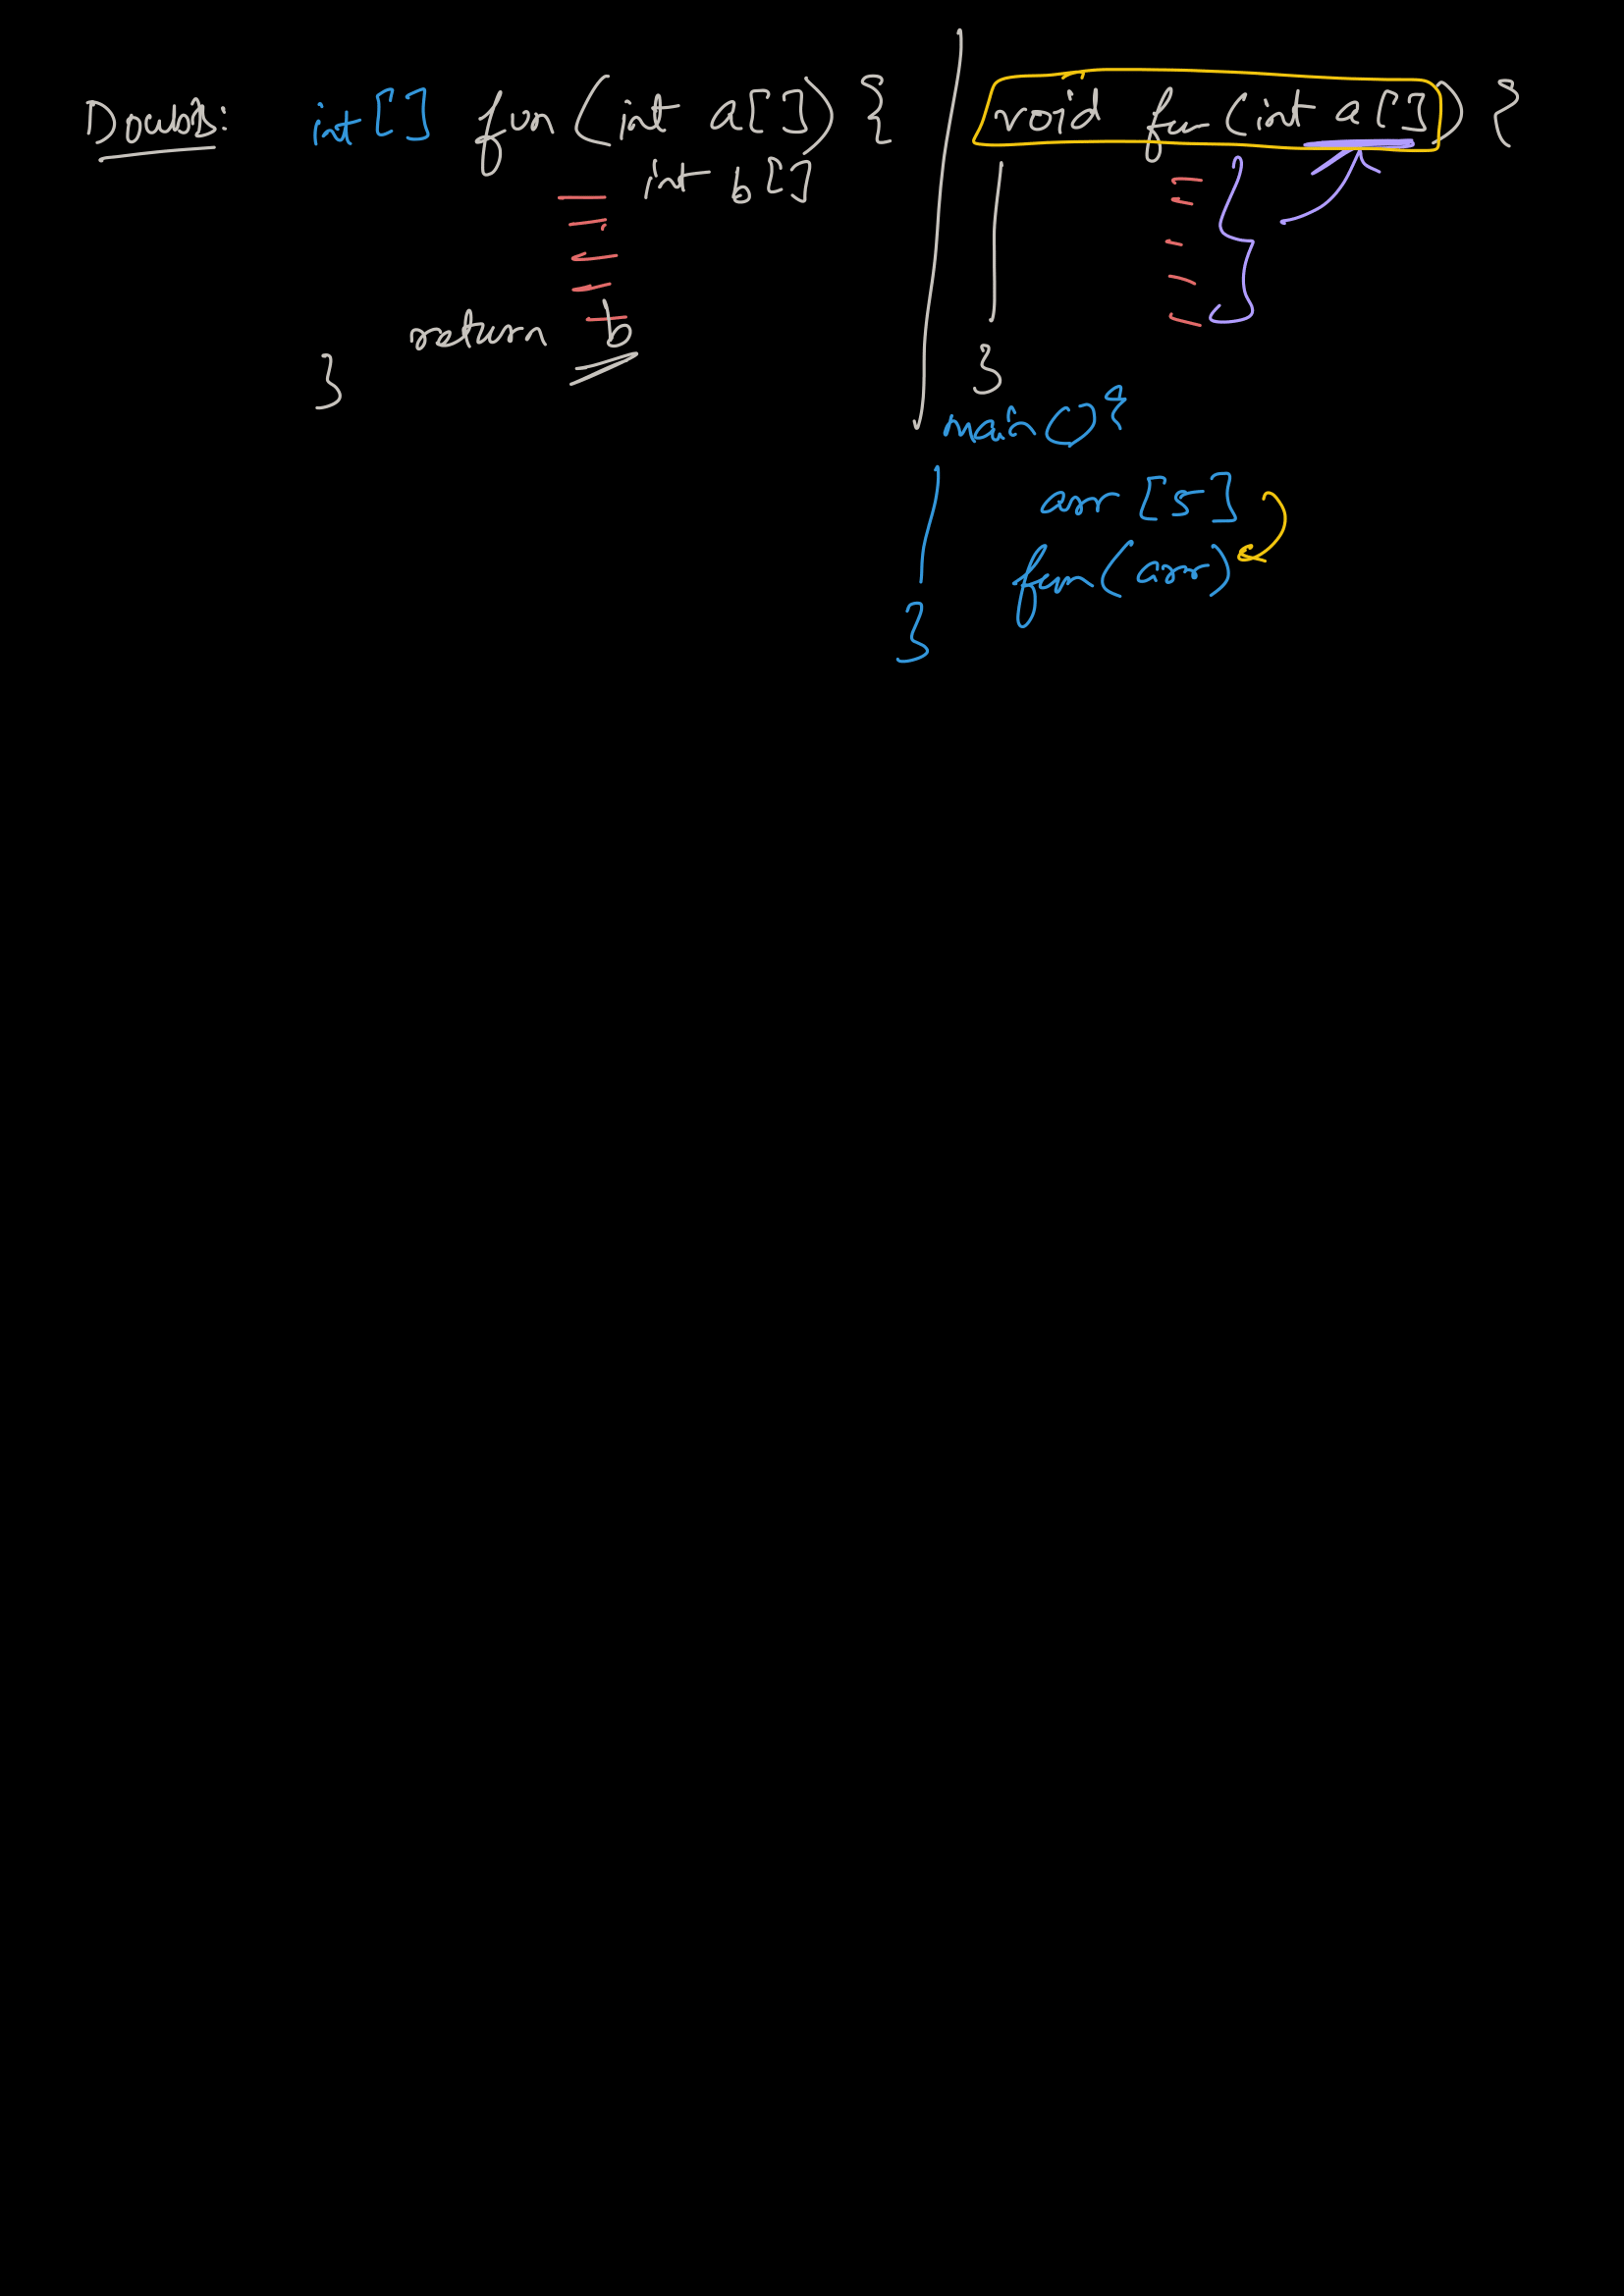 Doubts: int[] fun(int a[]) {
int b[]
return b
}
void fun(int a[]) {
}
main(){
arr[5]
fun(arr)
}